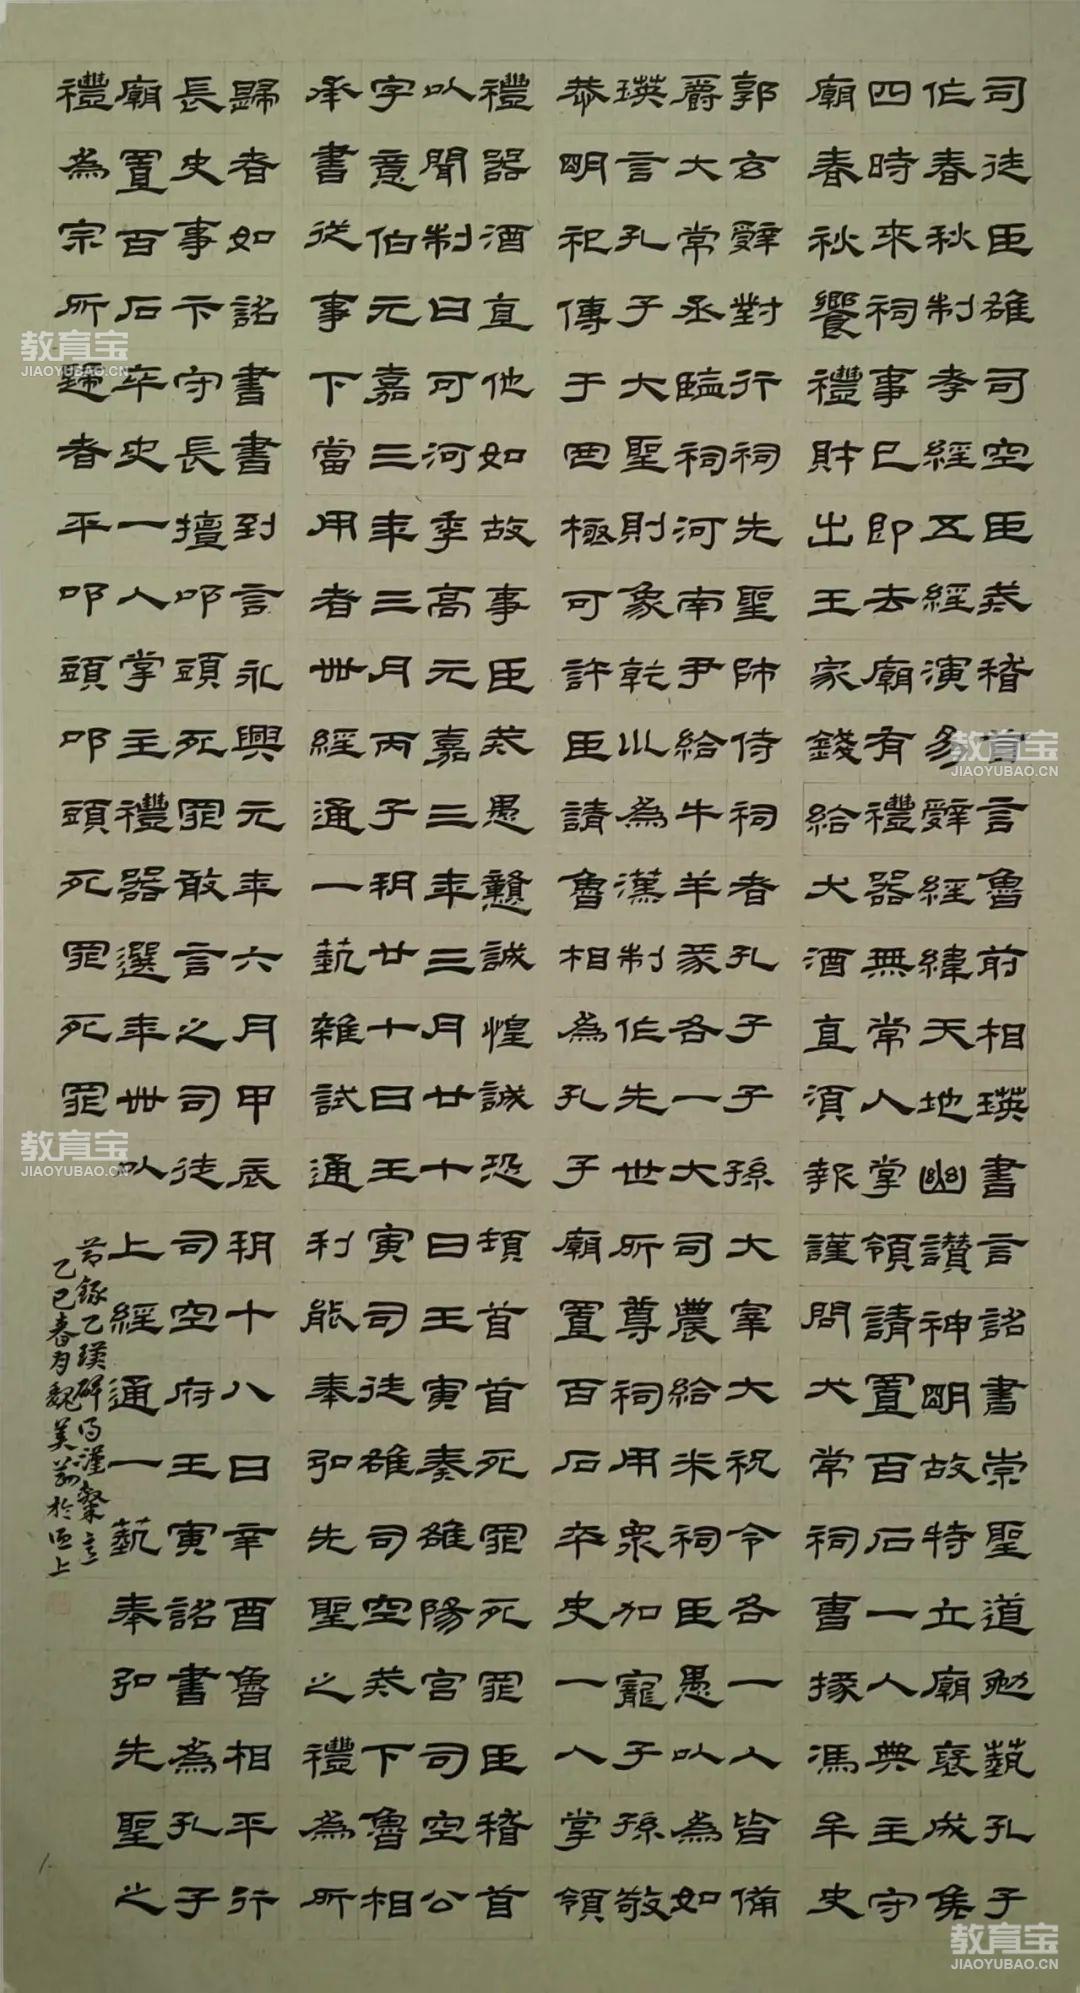 司徒臣雄司空臣戒稽首言魯前相瑛書言詔書崇聖道勉藝孔子
作春秋制孝經五經演易辤經緯天地幽讃神明故特立廟褒成侯
四時來祠事已即去廟有禮器無常人掌領請置百石一人典主守
廟春秋饗禮財出王家錢給犬酒直須報謹問犬常祠曹掾馮牟史
郭玄辤對行祠先聖師侍祠者孔子子孫大宰大祝令各一人皆備
爵大常丞臨祠河南尹給牛羊豕各一大司農給米祠臣愚以為如
瑛言孔子大聖則象乾以為漢制作先世所尊祠用眾加寵子孫敬
恭明祀傳于罔極可許臣請魯相為孔子廟置百石卒史一人掌領
禮器酒直他如故事臣戒愚戇誠惶誠恐頓首首死罪死罪臣稽首
以聞制曰可河季高元嘉三年三月廿十日王寅奏雄陽宮司空公
字意伯元嘉三年三月丙子朔廿十日王寅司徒雄司空戒下魯相
承書從事下當用者世經通一藝雜試通利能奉弘先聖之禮為所
歸者如詔書書到言永興元年六月甲辰朔十八日辛酉魯相平行
長史事卞守長擅叩頭死罪敢言之司徒司空府王寅詔書為孔子
廟置百石卒史一人掌主禮器選年世以上經通一藝奉弘先聖之
禮為宗所歸者平叩頭叩頭死罪死罪
節錄乙瑛碑
乙巳春月魏美於上
教育宝
JIAOYUBAO.CN
教育宝
JIAOYUBAO.CN
教育宝
JIAOYUBAO.CN
教育宝
JIAOYUBAO.CN